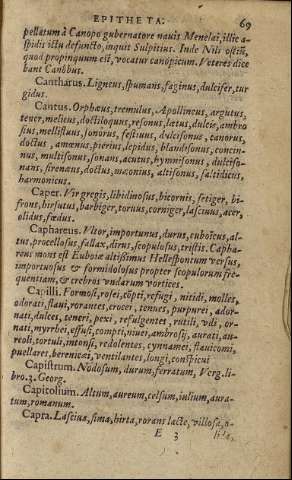 EPITHETA. 69
pellatum à Canopo gubernatore nauis Menelai, illic a-
spidis ictu defuncto, inquit Sulpitius. Inde Nili ostiū,
quod propinquum est, vocatur canopicum. Veteres dice
bant Canobus.
Cantharus. Ligneus, spumans, faginus, dulcifer, tur
gidus.
Cantus. Orphæus, tremulus, Apollineus, argutus,
teucr, melicus, doctiloquus, resonus, lætus, dulcis, ambro
sius, mellifluus, sonorus, festiuus, dulcisonus, canorus,
doctus, amœnus, pierius, lepidus, blandisonus, concin-
nus, multifonus, sonans, acutus, hymnisonus, dulciso-
nans, sirenaus, doctus, mæonius, altisonus, fatidicus,
harmonicus.
Caper. Vir gregis, libidinosus, bicornis, setiger, bi-
frons, hirsutus, barbiger, toruus, corniger, lasciuus, acer,
olidus, fœdus.
Caphareus. Vltor, importunus, durus, euboicus, al-
tus, procellosus, fallax, dirus, scopulosus, tristis. Capha-
reus mons est Euboiæ altissimus Hellespontum versus,
importuosus & formidolosus propter scopulorum fre-
quentiam, & crebros vndarum vortices.
Capilli. Formosi, rosei, cōpti, refugi, nitidi, molles,
odorati, flaui, rorantes, crocei, tenues, purpurei, ador-
nati, dulces, teneri, pexi, refulgentes, rutili, vdi, or-
nati, myrrhei, effusi, compti, niuei, ambrosij, aurati, au-
reoli, tortuli, intonsi, redolentes, cynnamei, flauicomi,
puellares, berenicæi, ventilantes, longi, conspicui
Capistrum. Nodosum, durum, ferratum, Verg. li-
bro. 3. Georg.
Capitolium. Altum, aureum, celsum, iulium, aura-
tum, romanum.
Capra. Lasciua, sima, hirta, rorans lacte, villosa, o-
E 3